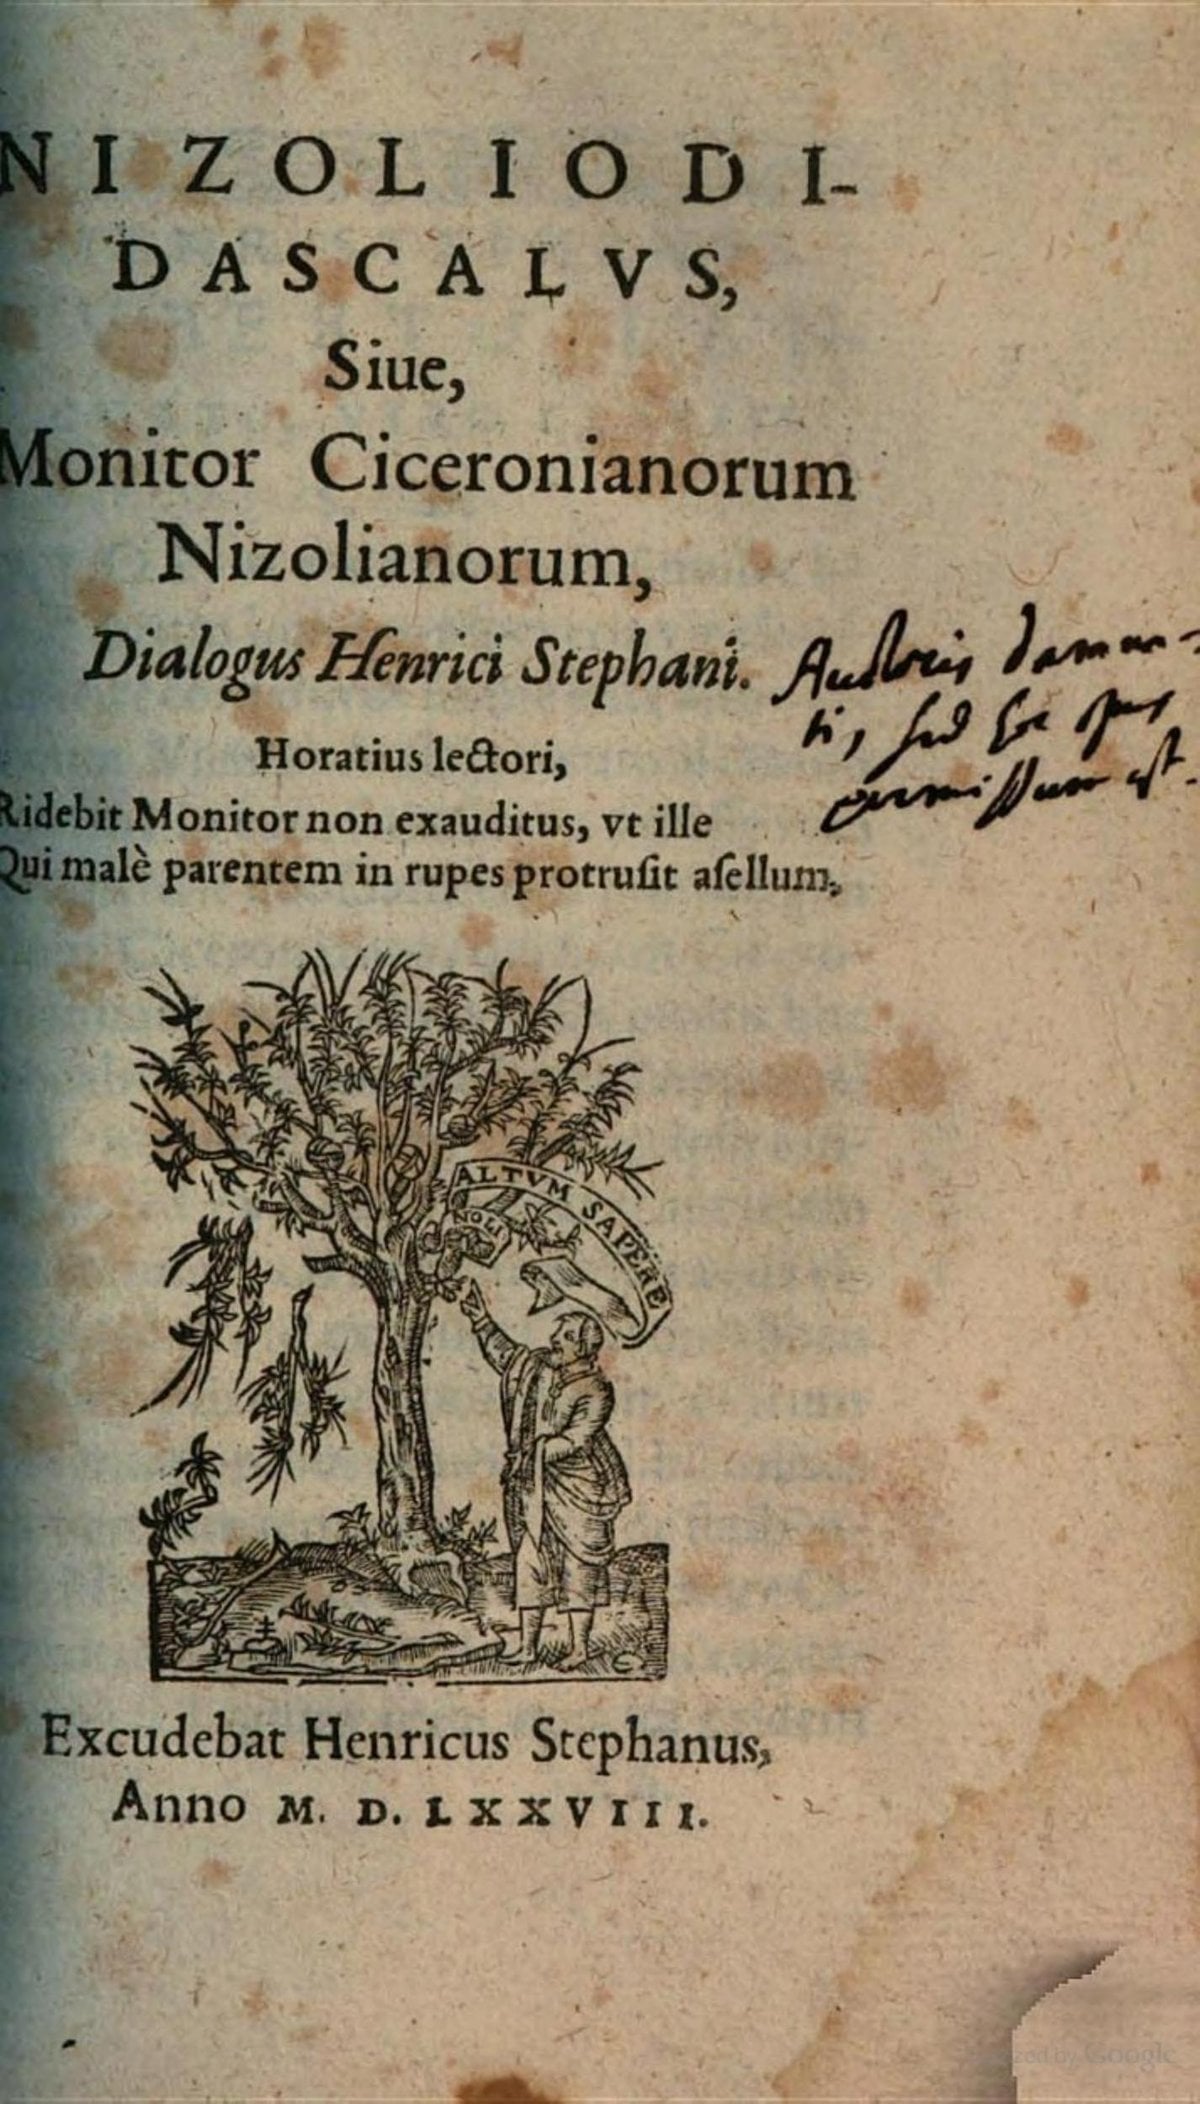 NIZOLIODI-
DASCALVS,
Siue,
Monitor Ciceronianorum
Nizolianorum,
Dialogus Henrici Stephani.
Auctoris damna-
ti, sed hoc opus
permissum est.
Horatius lectori,
Ridebit Monitor non exauditus, vt ille
Qui malè parentem in rupes protrusit asellum.
NOLI
ALTVM SAPERE
Excudebat Henricus Stephanus,
Anno M. D. LXXVIII.
Digitized by Google